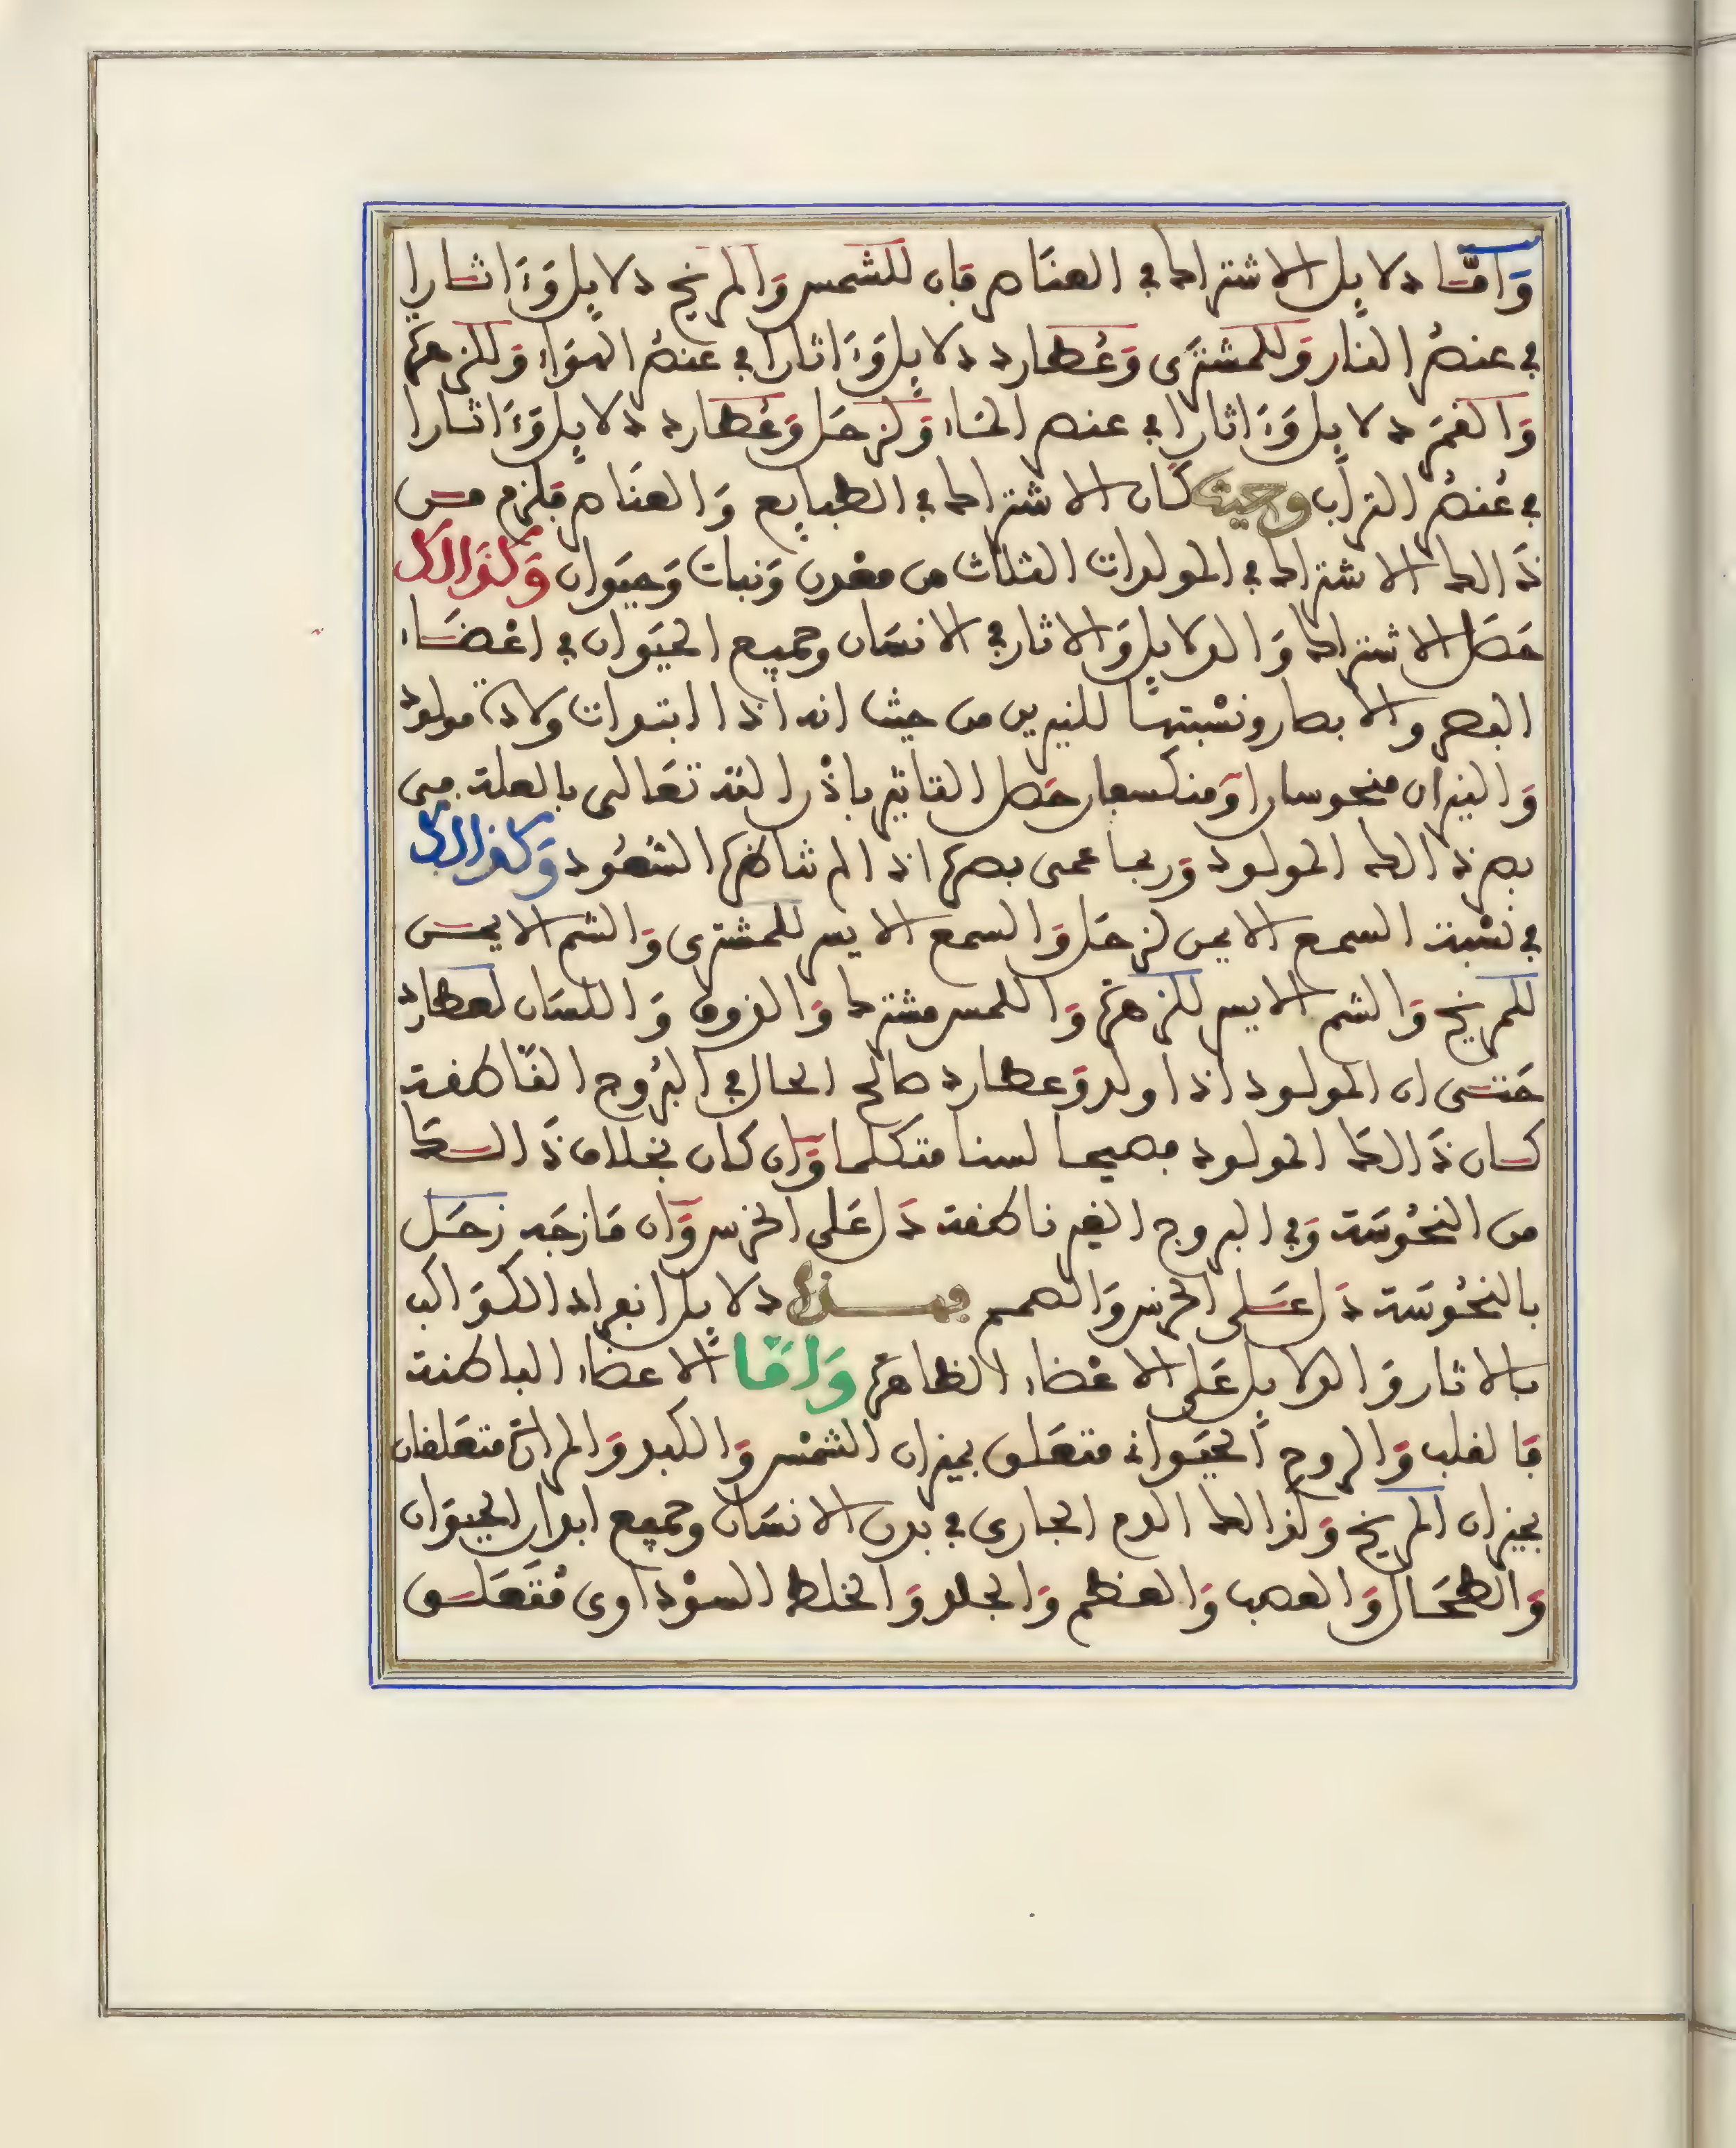 وَامَّا دلايل الاشتراك في العنَاصر فَان للشمس وَالمريخ دلايل وَءَاثارا
في عنصُر النار وَللمشترَى وَعُطارد دلايل وَءَاثارا في عنصُر الهوَاء وَللزهرَة
وَالقمَر دلايل وَءَاثارا في عنصر المَاء وَلزحَل وَعُطارد دلايل وَءَاثارا
في عُنصُر الترَاب وحيث كَان الاشتراك في الطبايع وَالعنَاصر فلزم من
ذَالك الاشتراك في المولدات الثلاث من معْدن وَنبات وَحيَوان وَكذَالك
حَصَل الاشتراك وَالدلايل وَالاثار في الانسَان وجميع الحيَوان في اعْضَاء
البصر والابصار ونسْبتها للنيرين من حيث انه اذا ابتدات ولادة مولود
وَالنيران منحوسان اوَ منكسفان حَصل التاثير باذْن الله تعَالى بالعلة في
بصر ذالك المولود وَربما عمى بصره اذا لم تناظرها السُّعُود وَكذالك
في نسْبة السمع الايمن لزحَل وَالسمع الايسر للمشترى وَالشم الايمن
للمريخ وَالشم الايسر للزهرَة وَاللمس مشترك وَالذوق وَاللسَان لعطارد
حَتى ان المولود اذا ولد وَعطارد صالح الحال في البرُوج النّاطقة
كان ذَالك المولود فصيحا لسنا متكلما وَان كان بخلاف ذَالك
من النحُوسَة وَفي البروج الغير ناطقة دَل عَلى الخرس وَان مَازجَه زحَل
بالنحُوسَة دَل عَلى الخرس وَالصمم فهذه دلايل انفراد الكوَاكب
بالاثار وَالدلايل عَلى الاعْضاء الظاهرَة وَامَّا الاعضاء الباطنة
فَالقلب وَالروح الحيَوانى متعَلق بميزان الشمْس وَالكبد وَالمرارَة متعَلقان
بميزان المريخ وَكذالك الدم الجارى في بدن الانسَان وجميع ابدان الحيوَان
وَالطحَال وَالعصب وَالعَظم وَالجلد وَالخلط السوْداوى مُتعَلق